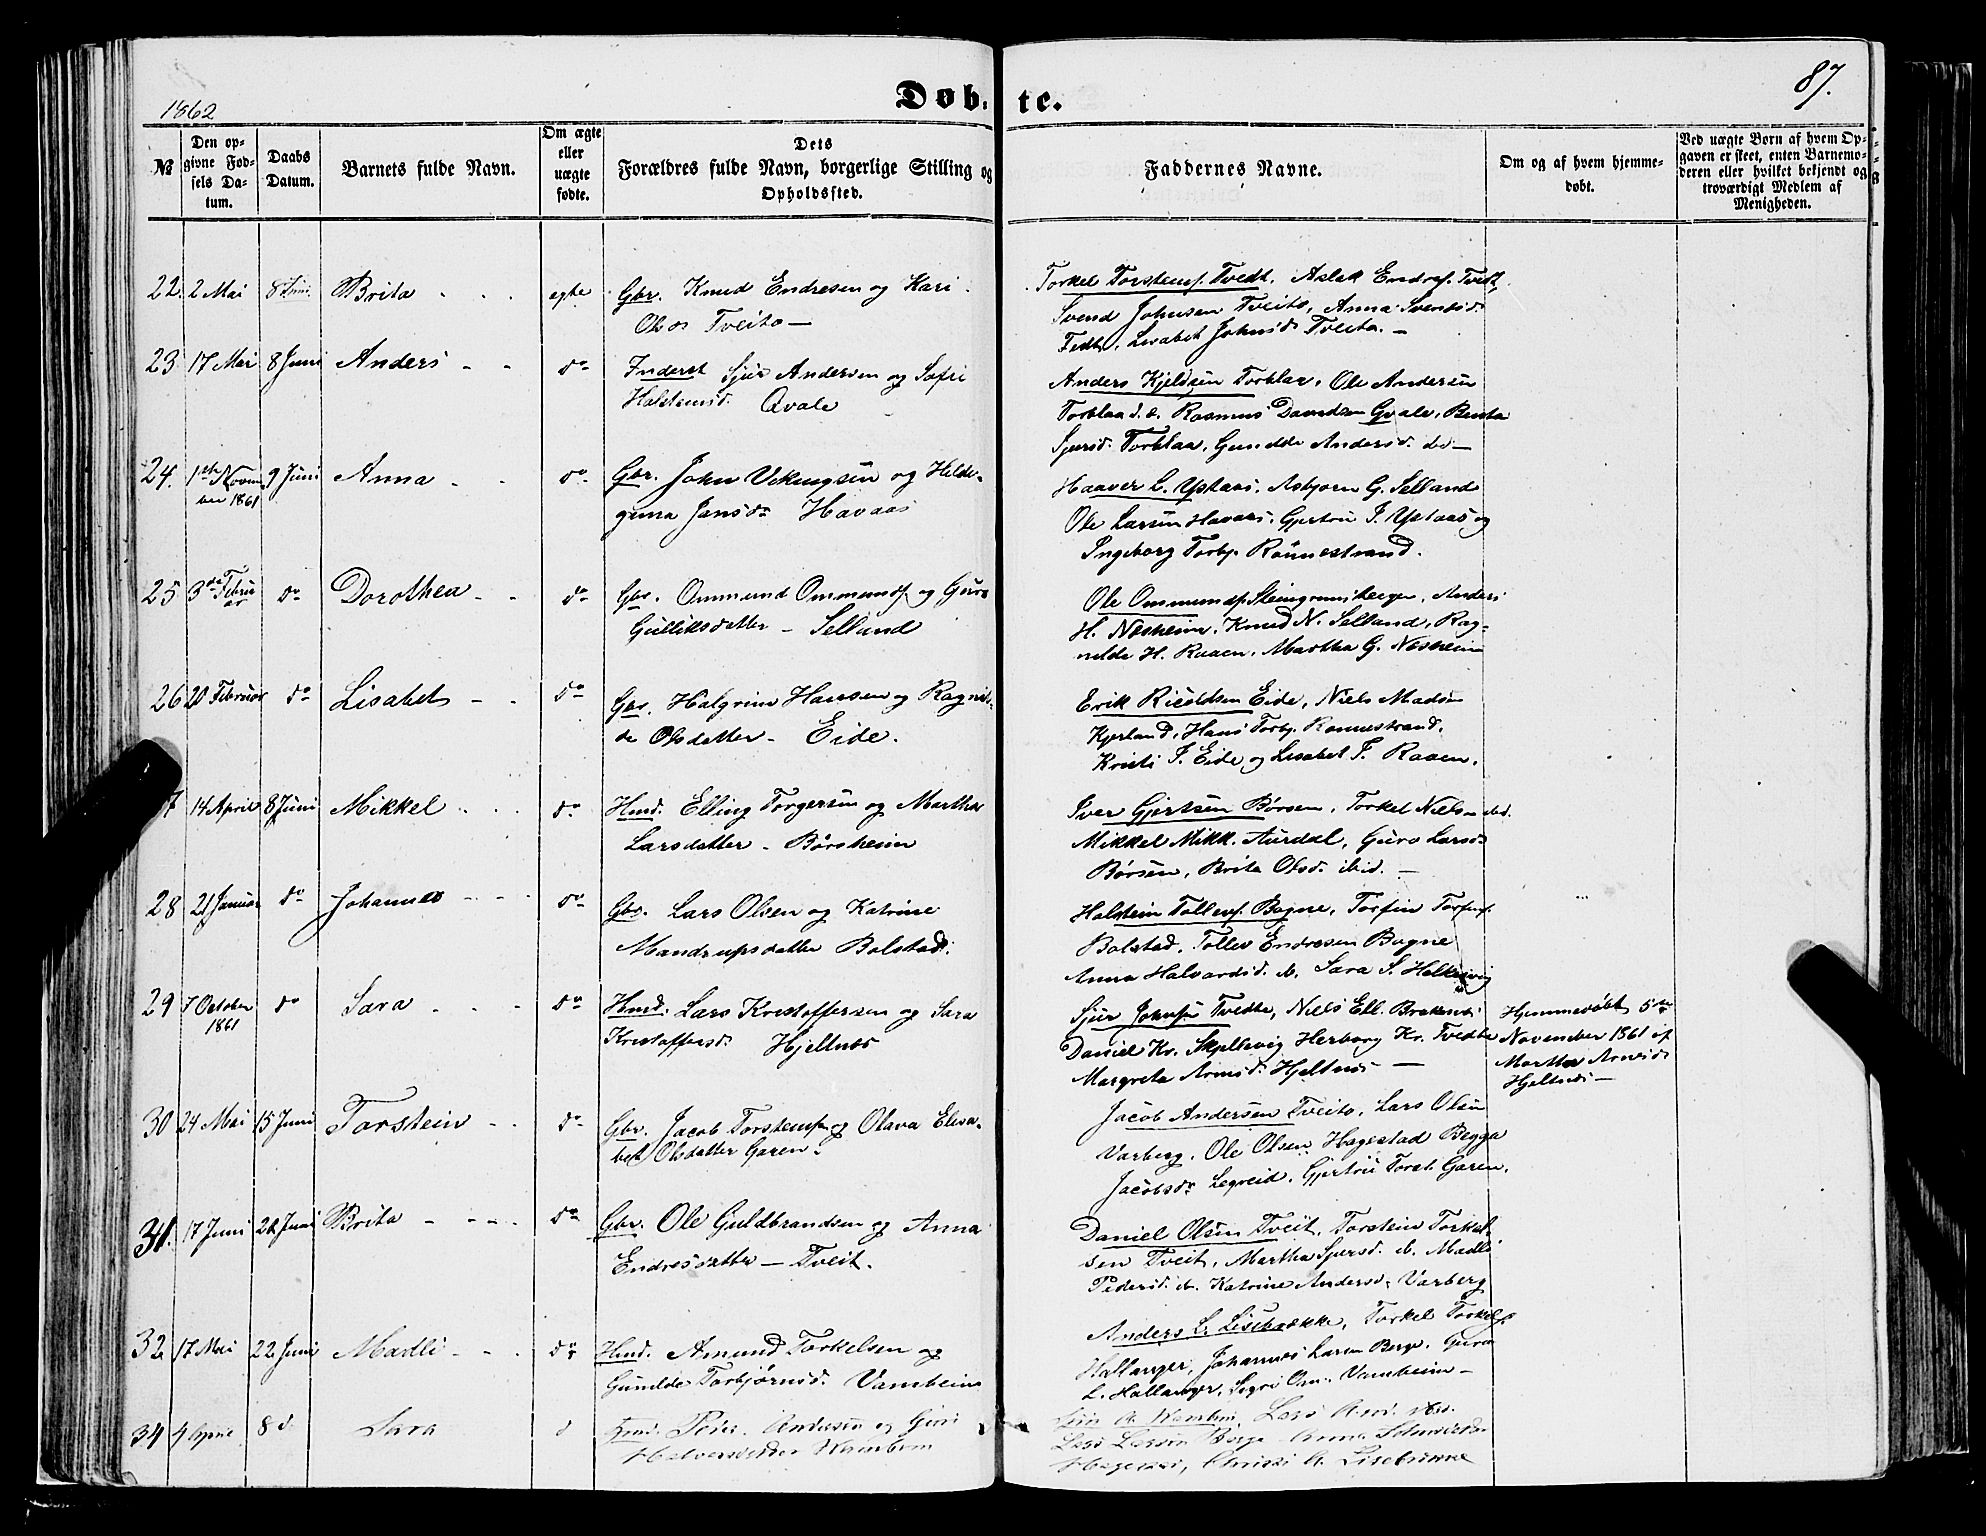 1862
Døb. te.
87.
№
Den op-
givne Fød-
sels Da-
tum.
Daabs
Datum.
Barnets fulde Navn.
Om ægte
eller
uægte
fødte.
Dets
Forældres fulde Navn, borgerlige Stilling og
Opholdssted.
Faddernes Navne.
Om og af hvem hjemme-
døbt.
Ved uægte Børn af hvem Op-
gaven er skeet, enten Barnemo-
deren eller hvilket bekjendt og
troværdigt Medlem af
Menigheden.
22. 2 Mai 8 Juni. Brita - - - egte Gbr. Knud Endresen og Kari
Olsdr Tveito —
Torkel Torstens. Tvedt, Aslak Endres. Tvedt,
Svend Johnsen Tveito, Anna Svensd.
Lisabet Johnsd. Tveita. —
23 17 Mai 8 Juni Anders - - do Inderst Sjur Andersen og
Holstensd. Qvale
Anders Kjeldsen Torblaa, Ole Andersen
Torblaa Rasmus Davidsen Qvale,
Sjursd. Torblaa, Gunilde Andersd. do —
24. 1ste Novem-
ber 1861 9 Juni Anna - - do Gbr. John Vikingsen og Hilde-
guna Jansdr Havaas
Haaver L. Ystaas, Asbjørn G. Selland
Ole Larsen Havaas, Gjertru J. Ystaas og
Ingeborg Torbj. Rønnestrand.
25 3de Febru
ar do Dorothea - - do Gbr. Ommund Ommunds. og Guro
Gulliksdatter - Selland
Ole Ommunds. Steingrimsberger, Anders
H. Nesheim, Knud N. Selland, Rag-
nilde H. Raaen, Martha G. Nesheim
26 20 Februar do Lisabet - - do Gbr. Halgrim Hansen og Ragnil-
de Olsdatter - Eide.
Erik Ricoldsen Eide, Niels Madsen
Kjerland, Hans Torbj. Rønnestrand,
Kristi J. Eide og Lisabet T. Raaen.
7 14 April 8 Juni Mikkel - - - do Hmd. Elling Torgersen og Martha
Larsdatter - Børsheim
Iver Gjertsen Børsem, Torkel Niels. ibd.
Mikkel Mikk. Aurdal, Guro Larsd.
Børsem, Brita Olsd. ibid. —
28 21 Januar do Johannes - - - do Gbr. Lars Olsen og Katrine
Mandrupsdatter Bolstad.
Halstein Tollefs. Bagne, Torfin Torfins.
Bolstad, Tollev Endresen Bagne
Anna Halvardsd. ib. Sara S.
29 7 October
1861 do Sara - - - do Hmd. Lars Kristoffersen og Sara
Kristoffersd. Hjeltnæs
Sjur Johnsen Tvedte, Niels Ell. Braknæs
Daniel Kr. Skjellevig Herborg Kr. Tvedte
Margreta Arnesd. Hjeltnæs —
Hjemmedøbt 5te
November 1861 af
Martha Arnesd.
Hjeltnæs —
30 24 Mai 15 Juni Torstein - - do Gbr. Jacob Torstens. og Olava Elisa-
bet Olsdatter Garen.
Jacob Andersen Tveito, Lars Olsen
Varberg, Ole Olsen Hagestad Begga
Jacobsdr Legreid, Gjertru Torst. Garen.
31. 17 Juni 26 Juni Brita - - - - do Gbr. Ole Guldbrandsen og Anna
Endresdatter — Tveit.
Daniel Olsen Tveit, Torstein Torkel-
sen Tveit, Martha Sjursd. ib. Madli
Pedersd. ib. Katrine Andersd. Varberg
32. 17 Mai 22 Juni Madli - - - do Hmd. Amund Torkelsen og
Gunilde Torbjørnsd. Vambheim
Anders L. Lisebrække, Torkel Torkels.
Hallanger, Johannes Larsen Berge, Guro
L. Hallanger, Sigri Vambheim —
34 4 April 8 d. Sara d Hmd. Peder Andersen og Guri
Halversdatter
Lars Larsen Berge Anna